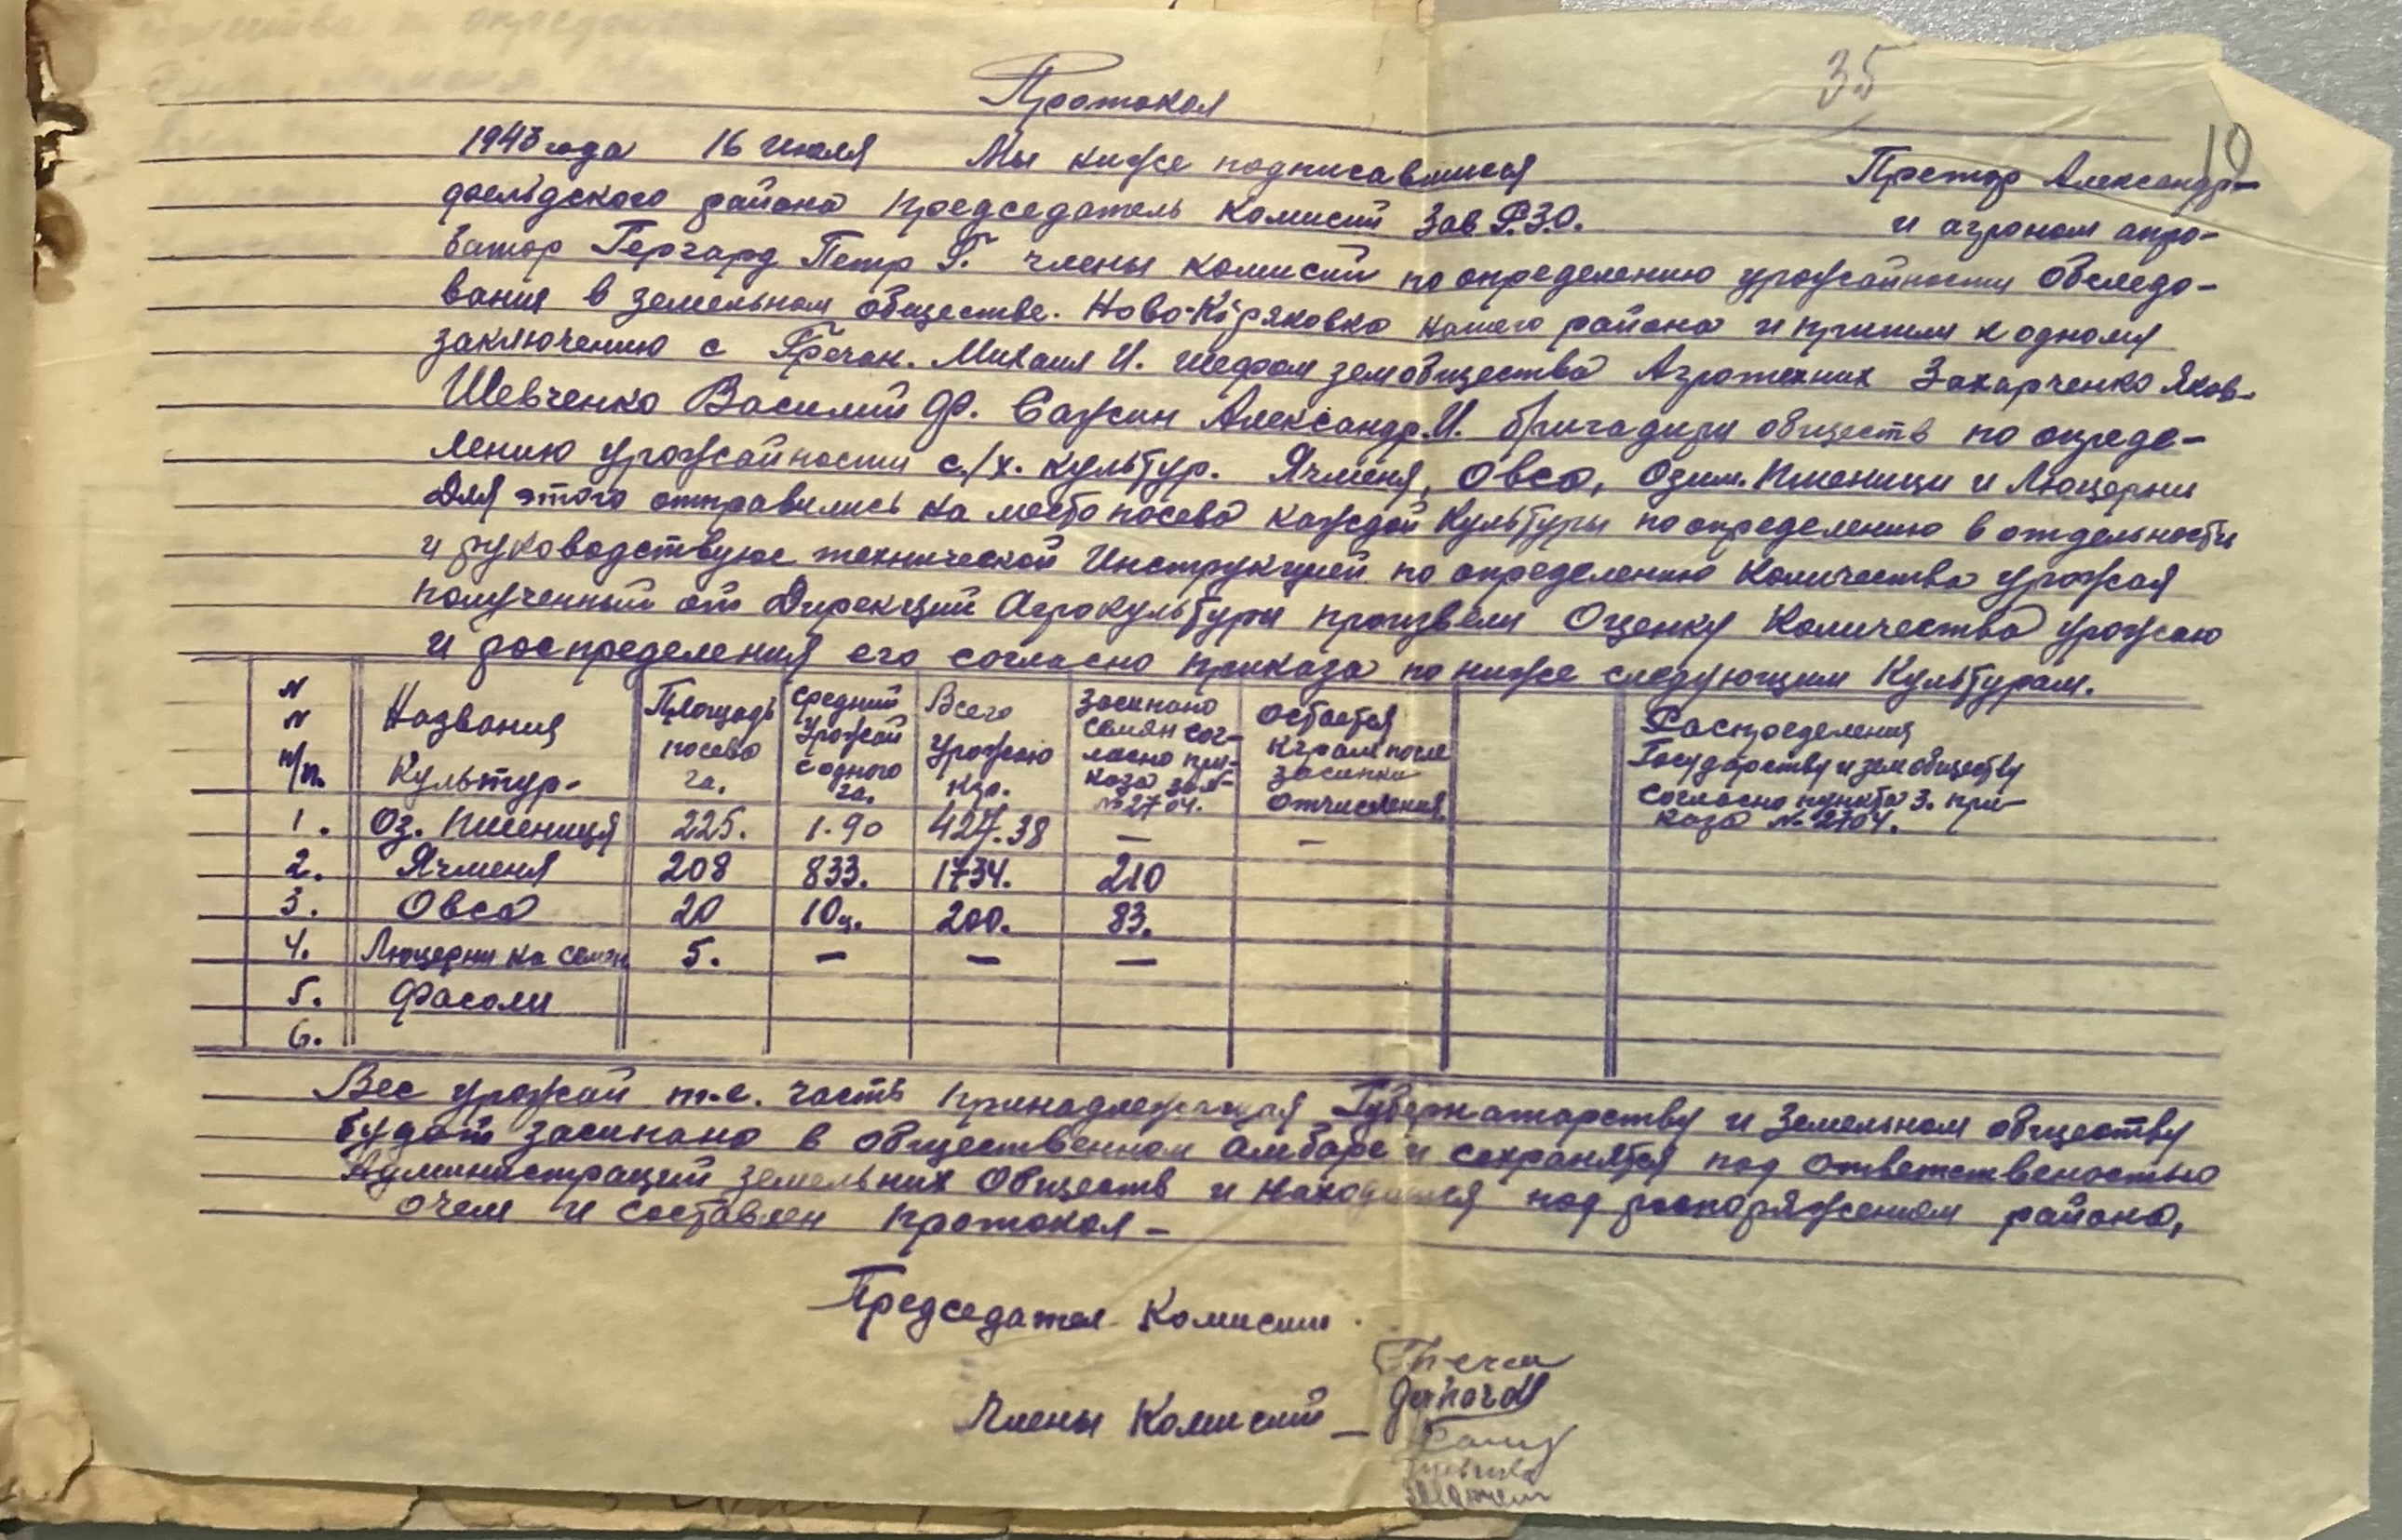 35
10
Протокол
1943 года 16 Июля Мы ниже подписавшися Претор Александр-
дфельдского района председатель комисий Зав. Р.З.О. и агроном апро-
батор Гергард Петр Г. члены комисий по определению урожайности обследо-
вания в земельном обществе. Ново-Кіряковка нашего района и пришли к одному
заключению с Гречан. Михаил И. шефом земобщества Агротехник Захарченко Яков.
Шевченко Василий Ф. Сажин Александр. И. бригадири обществ по опреде-
лению урожайности с./х. культур. Ячменя, Овса, Озим. Пшеници и Люцерни
Для этого отправились на место посева каждой Культуры по определению в отдельности
и руководствуюс технической Инструкцией по определению Количества урожая
полученный от Дирекций Агрокультури произвели Оценку Количества урожаю
и роспределения его согласно приказа по ниже следующим Культурам.
N N п/п. Названия Культур- Площадь посева га. Средний Урожай с одного га. Всего Урожаю кгр. Засипано семян сог-ласно при-каза № 2704. Остается кграм после засипки отчисления. Распределения Государству и земобществу согласно пункта 3. при-каза № 2704.
1. Оз. Пшениця 225. 1.90 427.38 — —
2. Ячменя 208 833. 1734. 210
3. Овса 20 10ц. 200. 83.
4. Люцерни на семян 5. — — —
5. Фасоли
6.
Вес урожай т.е. часть принадлежащая Губернаторству и Земельном обществу
будет засипано в общественном амбаре и сохранятся под ответственостью
Администраций земельних Обществ и находится под роспоряжением района,
очем и составлен протокол —
Председател Комисии.
Члены Комисий —
Gerhardt